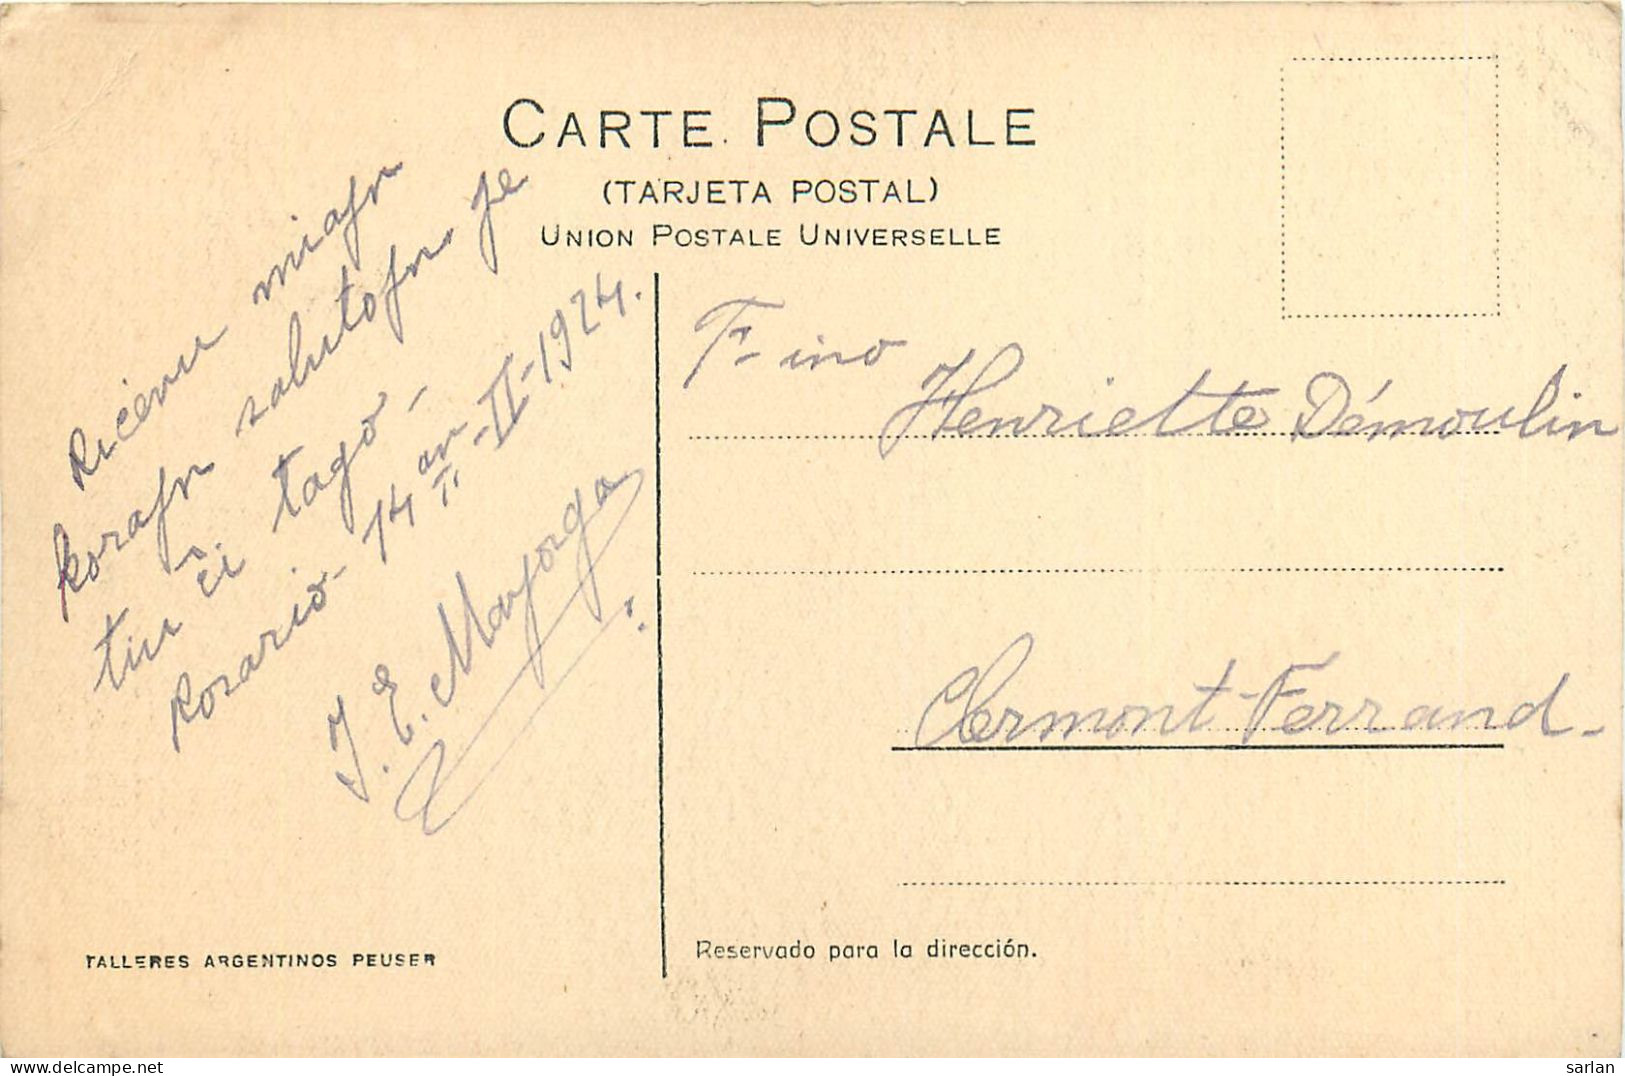 CARTE POSTALE
(TARJETA POSTAL)
UNION POSTALE UNIVERSELLE
Ricevu miajn
korajn salutojn je
tiu ĉi tago -
Rosario - 14an - II - 1924.
J. E. Mayorga
F-ino
Henriette Démoulin
Clermont-Ferrand -
TALLERES ARGENTINOS PEUSER
Reservado para la dirección.
sarlan